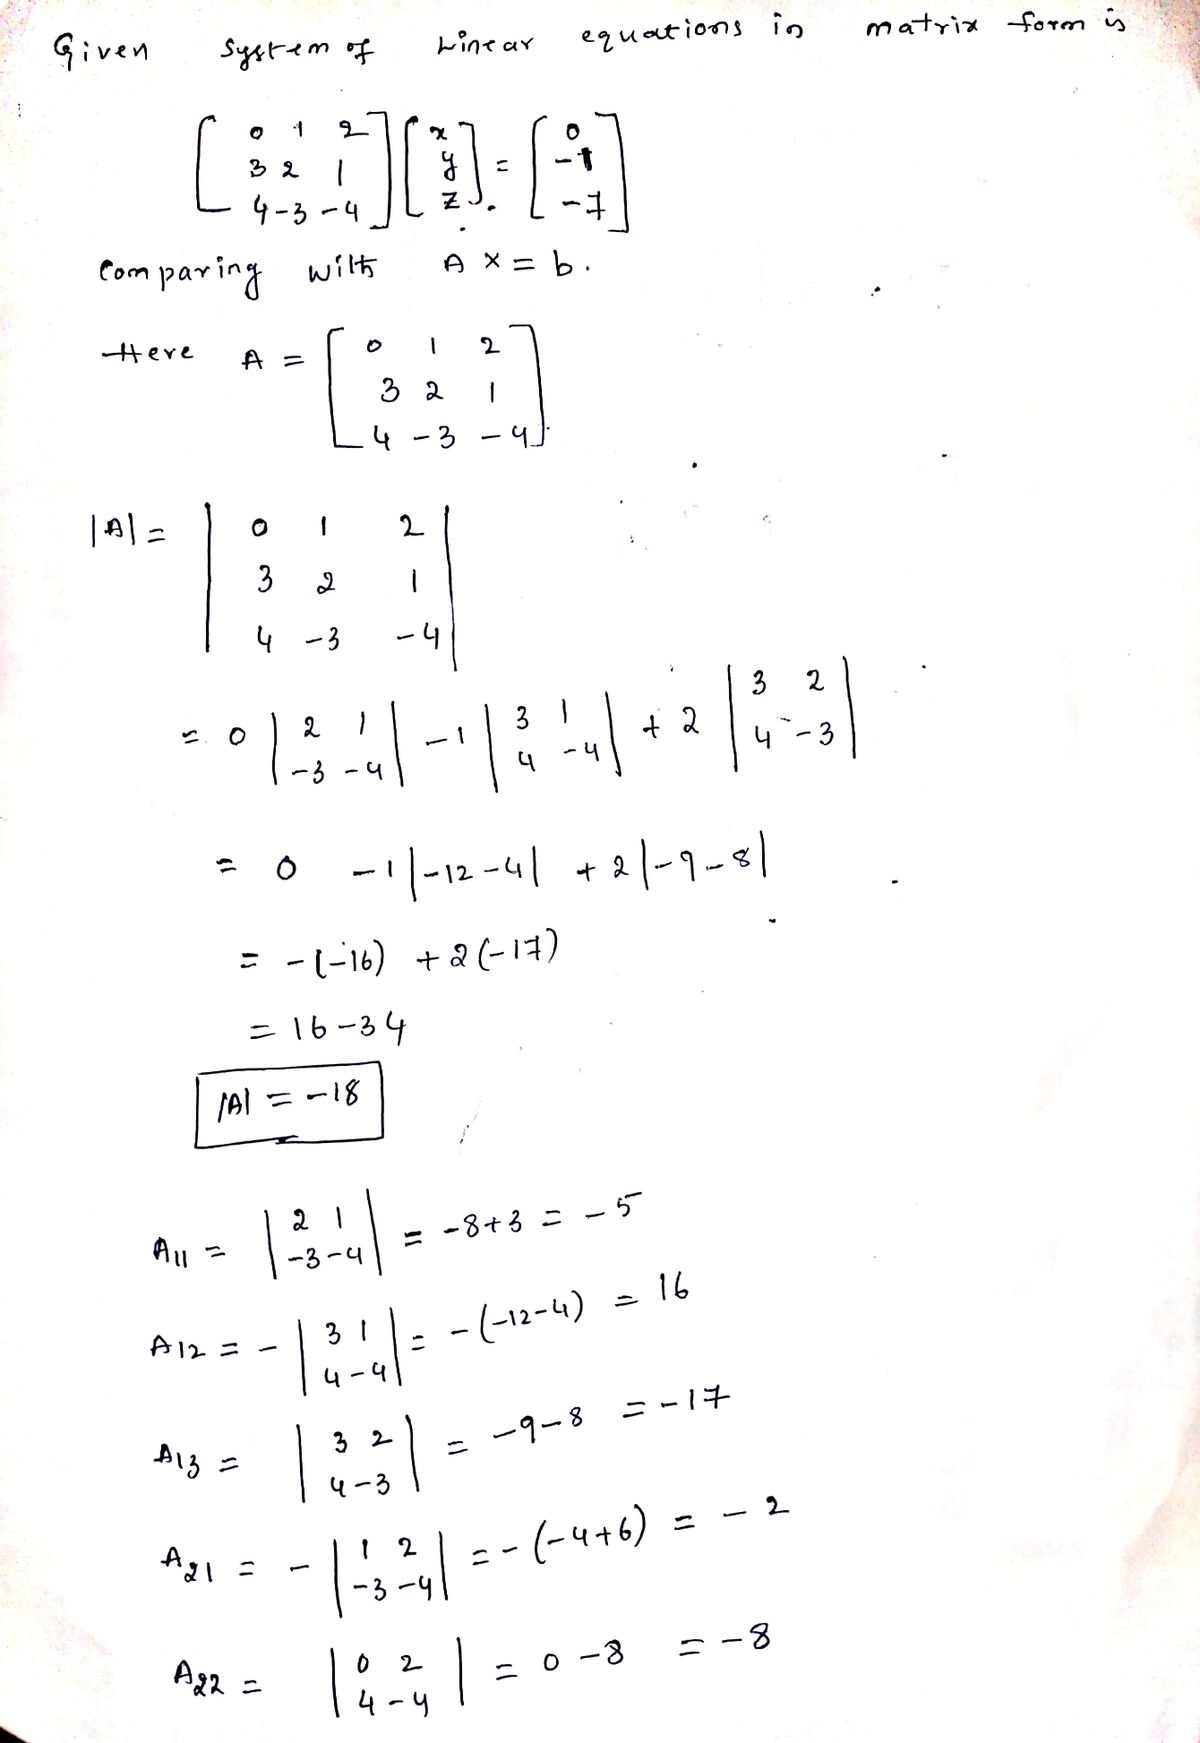 Given system of Linear equations in matrix form is
[ 0 1 2 ] [ x ] = [ 0 ]
[ 3 2 1 ] [ y ] [ -1 ]
[ 4 -3 -4 ] [ z ] [ -7 ]
Comparing with A X = b.
Here A = [ 0 1 2 ]
[ 3 2 1 ]
[ 4 -3 -4 ]
|A| = | 0 1 2 |
| 3 2 1 |
| 4 -3 -4 |
= 0 | 2 1 | -1 | 3 1 | + 2 | 3 2 |
| -3 -4 | | 4 -4 | | 4 -3 |
= 0 -1 |-12-4| + 2 |-9-8|
= -(-16) + 2(-17)
= 16-34
|A| = -18
A11 = | 2 1 | = -8+3 = -5
| -3 -4 |
A12 = - | 3 1 | = -(-12-4) = 16
| 4 -4 |
A13 = | 3 2 | = -9-8 = -17
| 4 -3 |
A21 = - | 1 2 | = -(-4+6) = -2
| -3 -4 |
A22 = | 0 2 | = 0-8 = -8
| 4 -4 |